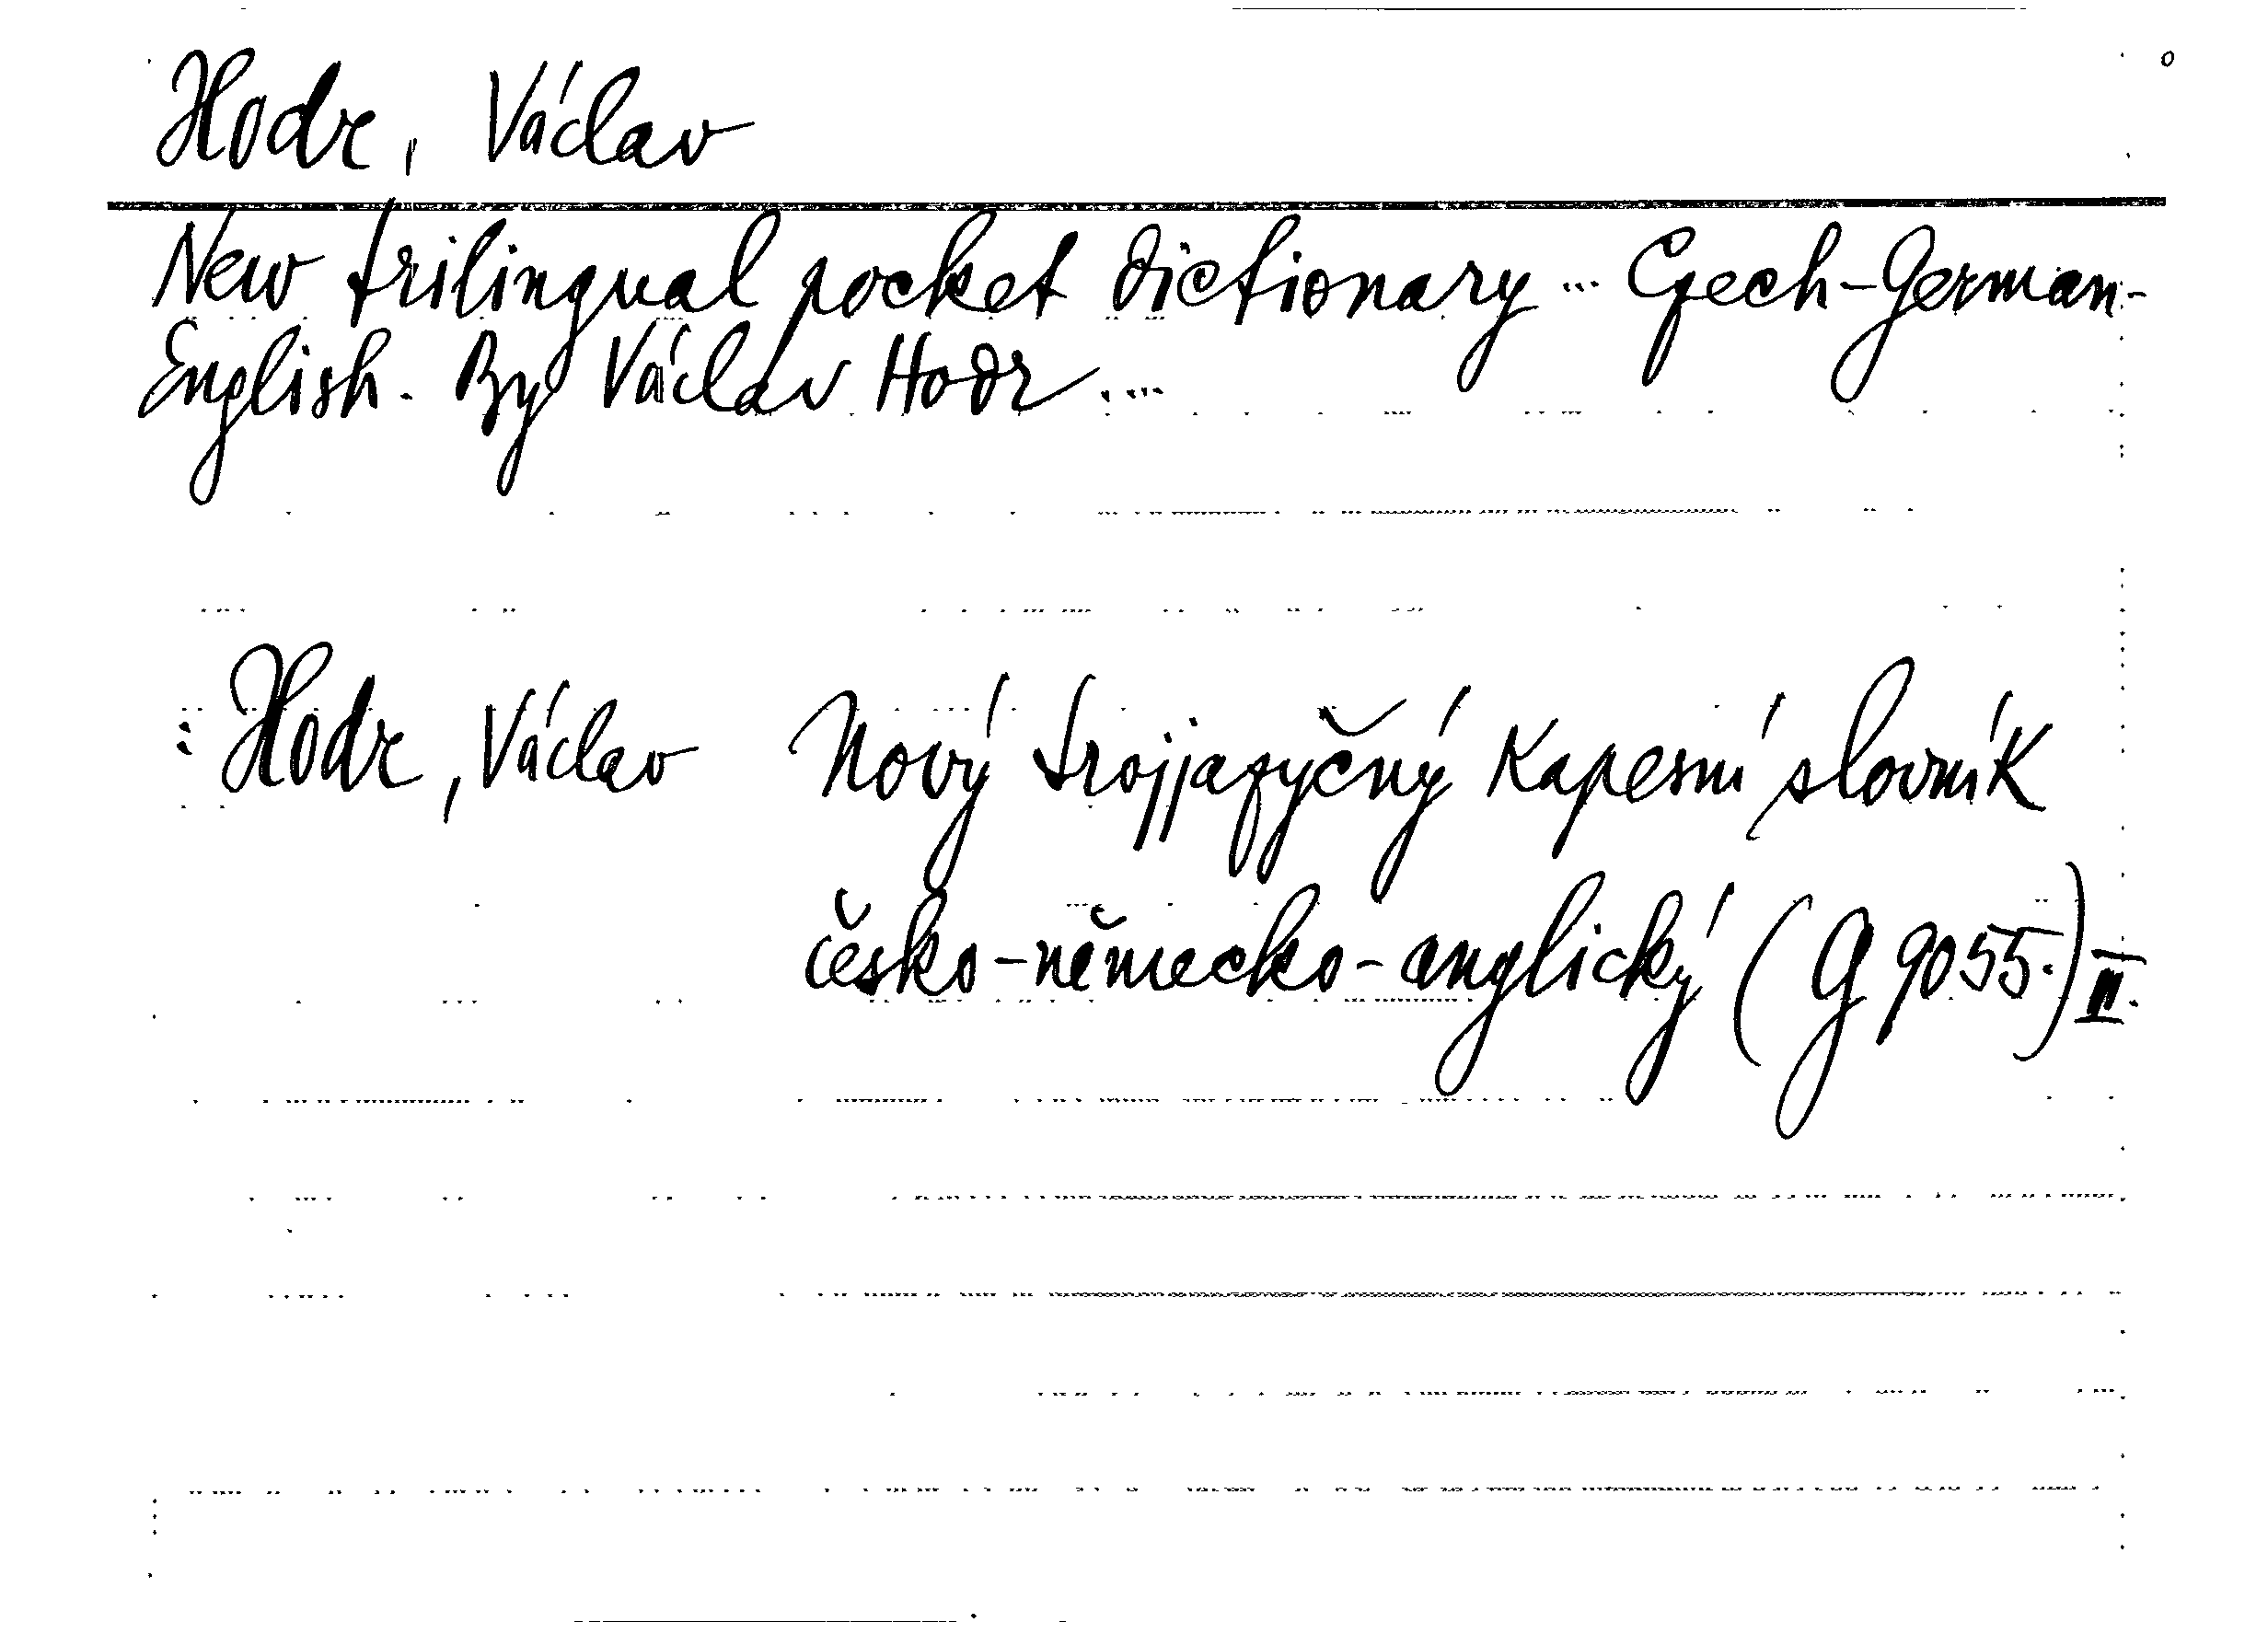 Hodr, Václav
New trilingual pocket dictionary ... Czech-German-
English. By Václav Hodr ....
: Hodr, Václav Nový trojjazyčný kapesní slovník
česko-německo-anglický (G 9055.) III.